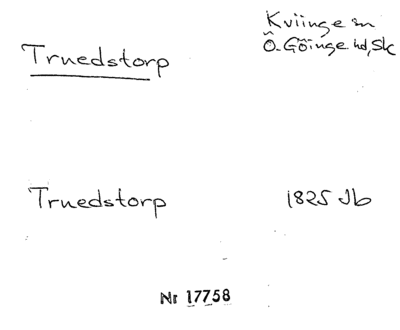 Truedstorp
Kviinge sn
Ö. Göinge hd, Sk
Truedstorp
1825 Jb
Nr 17758